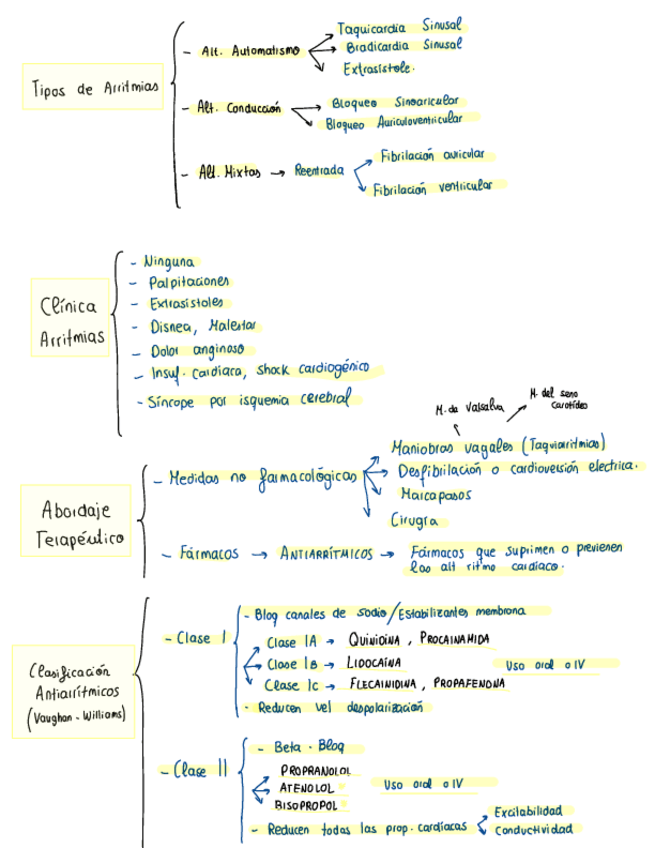 Tipos de Arritmias
- Alt. Automatismo
Taquicardia Sinusal
Bradicardia Sinusal
Extrasístole.
- Alt. Conducción
Bloqueo Sinoaricular
Bloqueo Auriculoventricular
- Alt. Mixtas → Reentrada
Fibrilación auricular
Fibrilación ventricular
Clínica
Arritmias
- Ninguna
- Palpitaciones
- Extrasístoles
- Disnea, Malestar
- Dolor anginoso
- Insuf. cardíaca, shock cardiogénico
- Síncope por isquemia cerebral
Abordaje
Terapéutico
- Medidas no farmacológicas
M. da Valsalva
M. del seno
carotídeo
Maniobras vagales (Taquiarritmias)
Desfibrilación o cardioversión electrica.
Marcapasos
Cirugía
- Fármacos → ANTIARRÍTMICOS → Fármacos que suprimen o previenen
las alt ritmo cardíaco.
Clasificación
Antiarrítmicos
(Vaughan-Williams)
- Clase I
- Bloq canales de sodio/Estabilizantes membrana
Clase IA → QUINIDINA, PROCAINAMIDA
Clase IB → LIDOCAÍNA
Uso oral o IV
Clase Ic → FLECAINIDINA, PROPAFENONA
- Reducen vel despolarización
- Clase II
- Beta-Bloq
PROPRANOLOL
ATENOLOL
BISOPROPOL
Uso oral o IV
- Reducen todas las prop. cardíacas
Excitabilidad
Conductividad